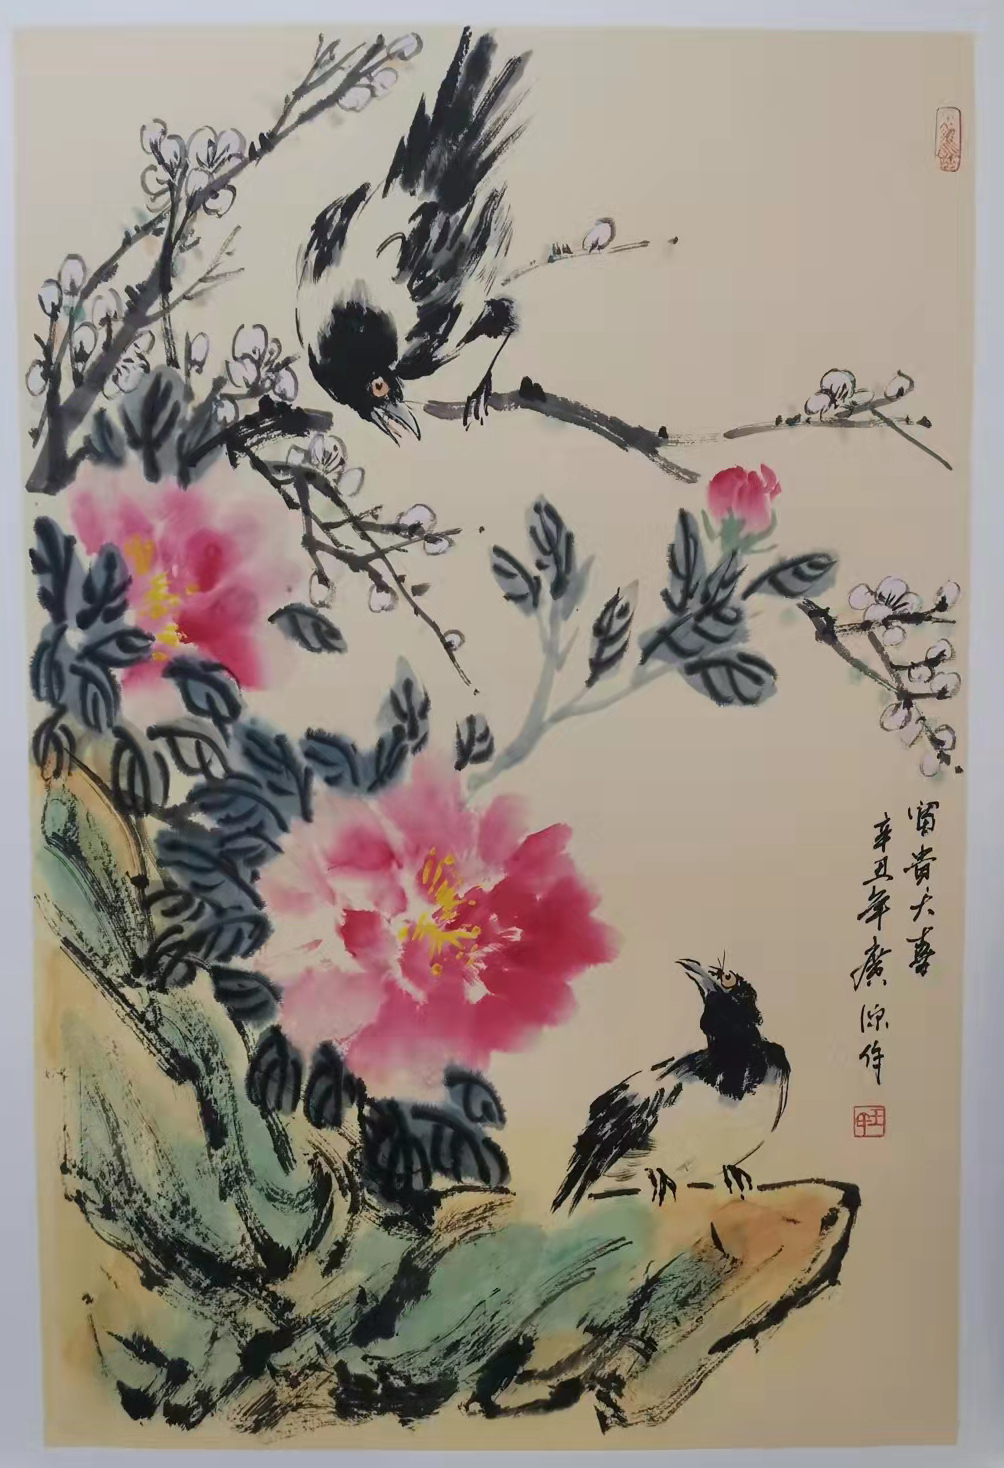 富贵大喜
辛丑年廣源作